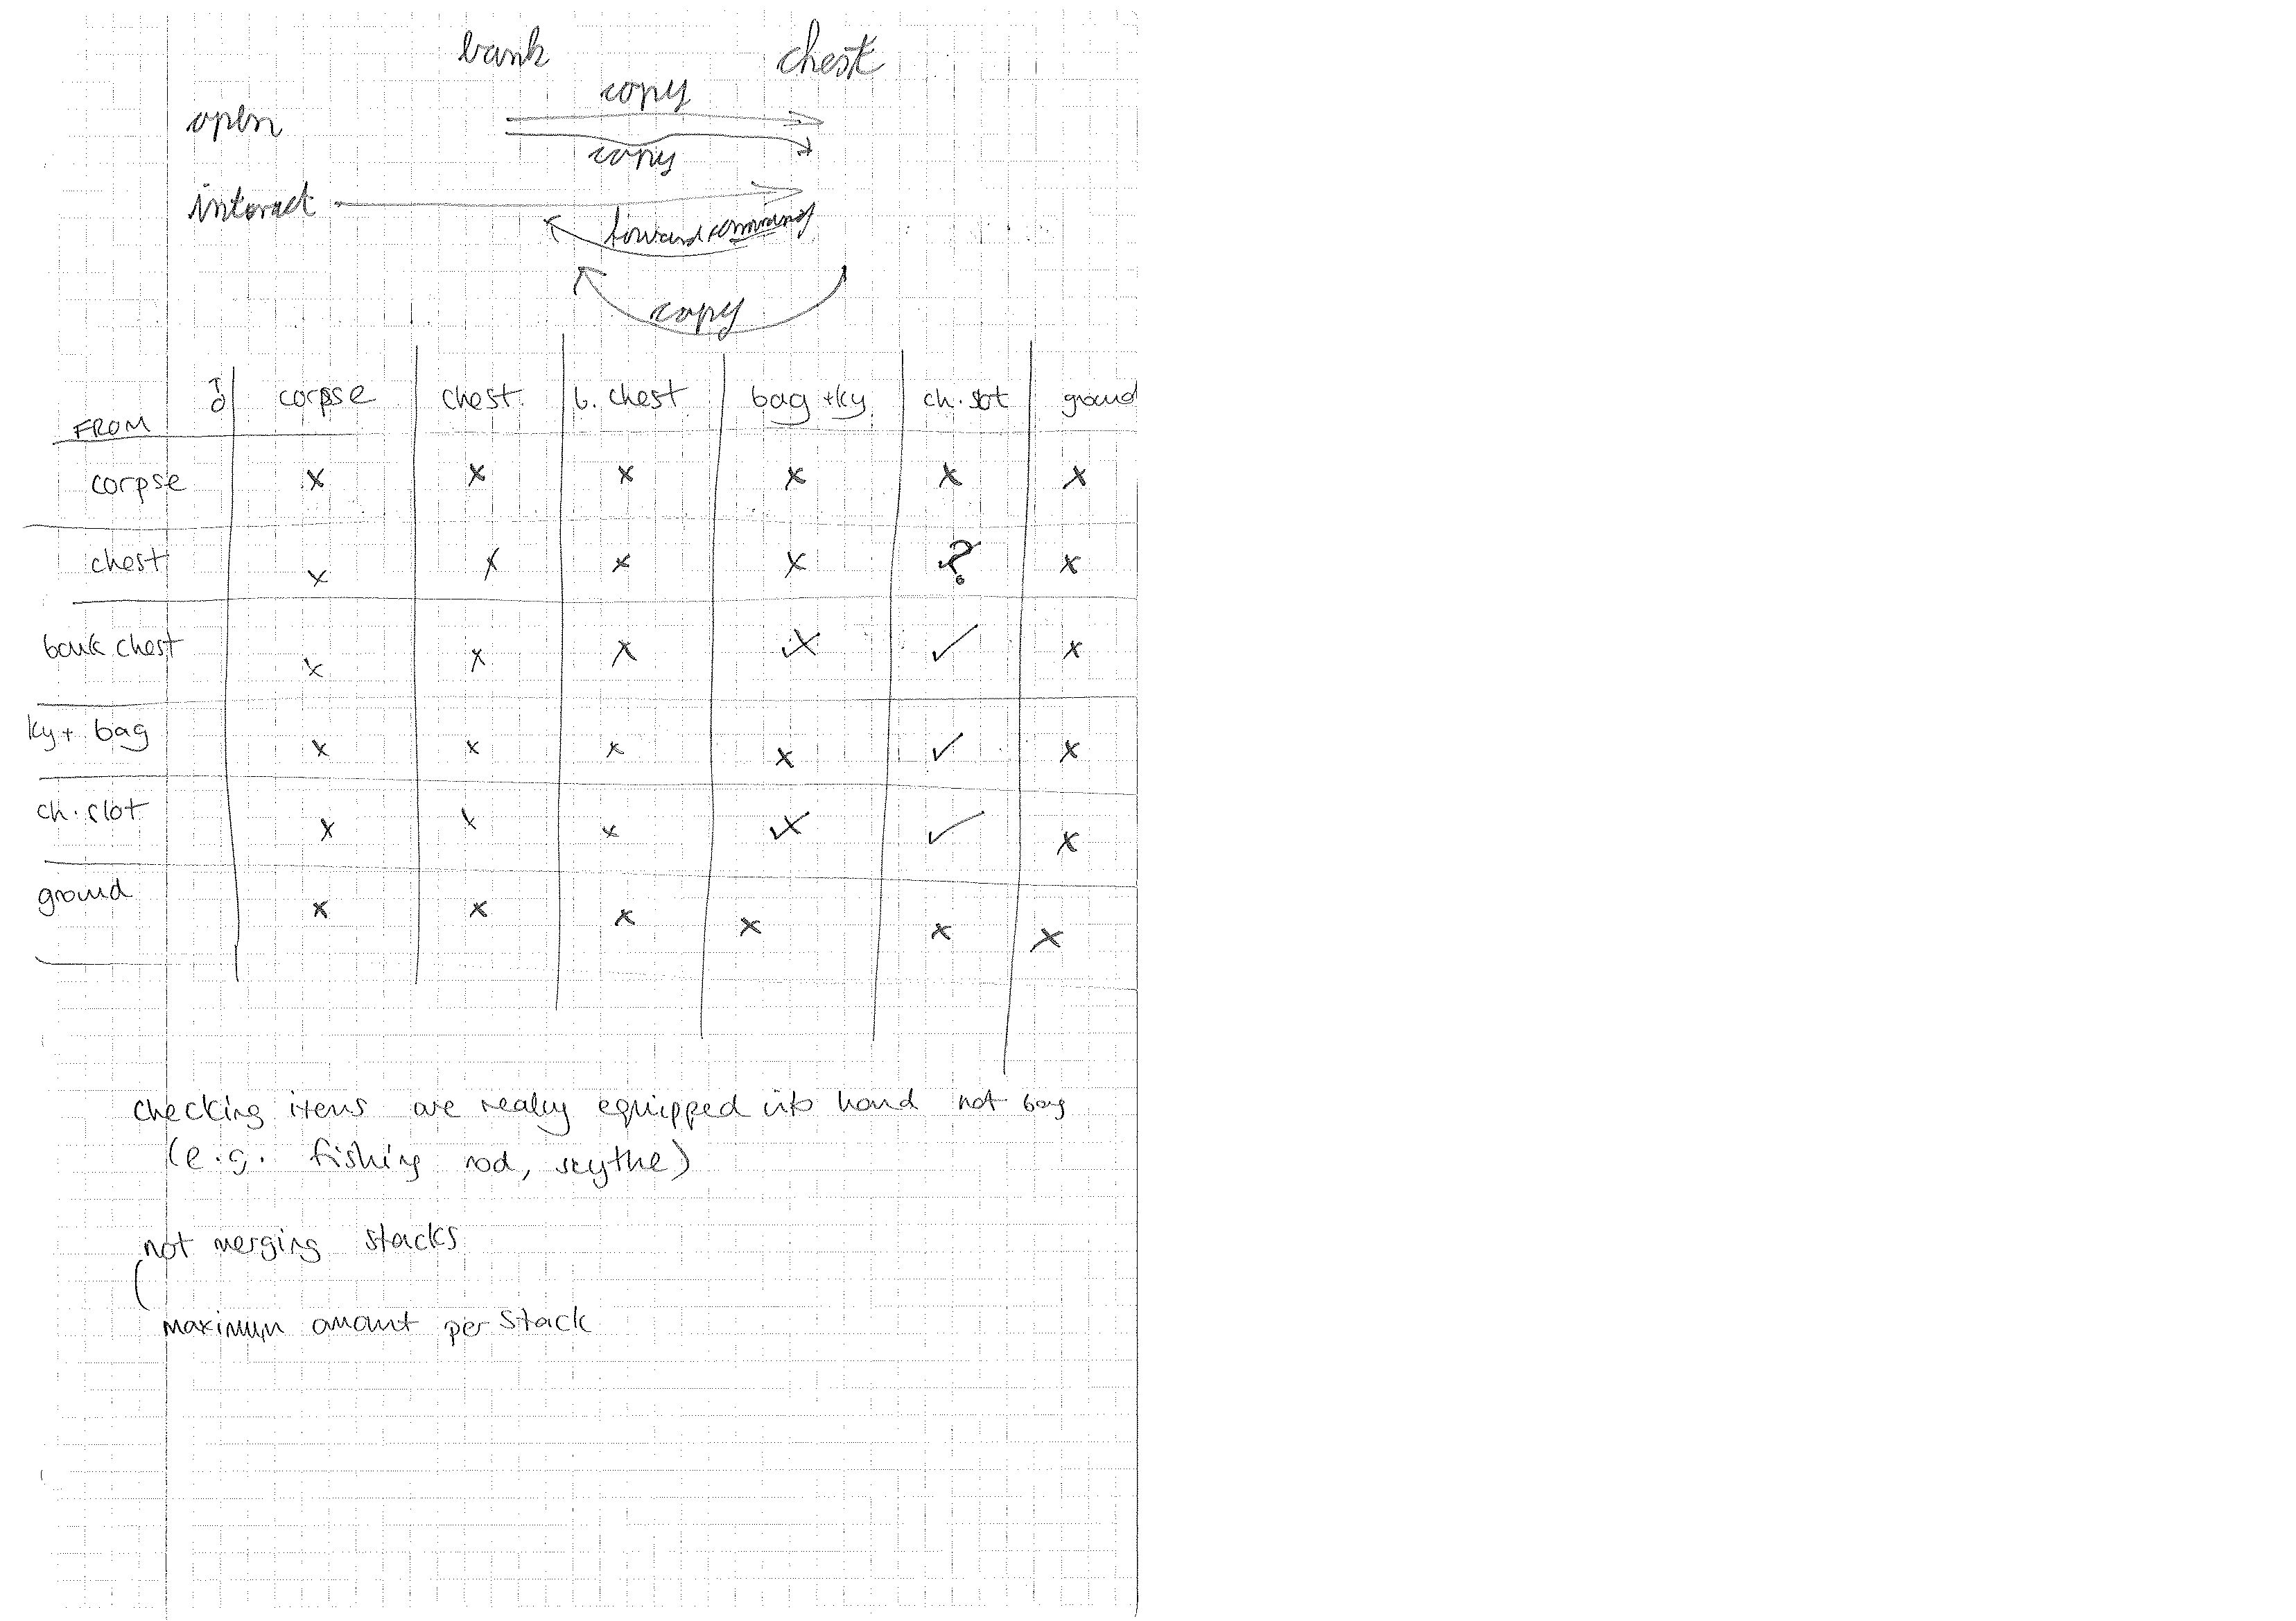 bank chest
copy
open
copy
interact
copy
TO corpse chest b. chest bag + ky ch. slot ground
FROM
corpse x x x x x x
chest x x x x ? x
bank chest x x x ✓x ✓ x
ky + bag x x x x ✓ x
ch. slot x x x ✓x ✓ x
ground x x x x x x
checking items are really equipped into hand not bag
(e.g. fishing rod, scythe)
not merging stacks
maximum amount per stack